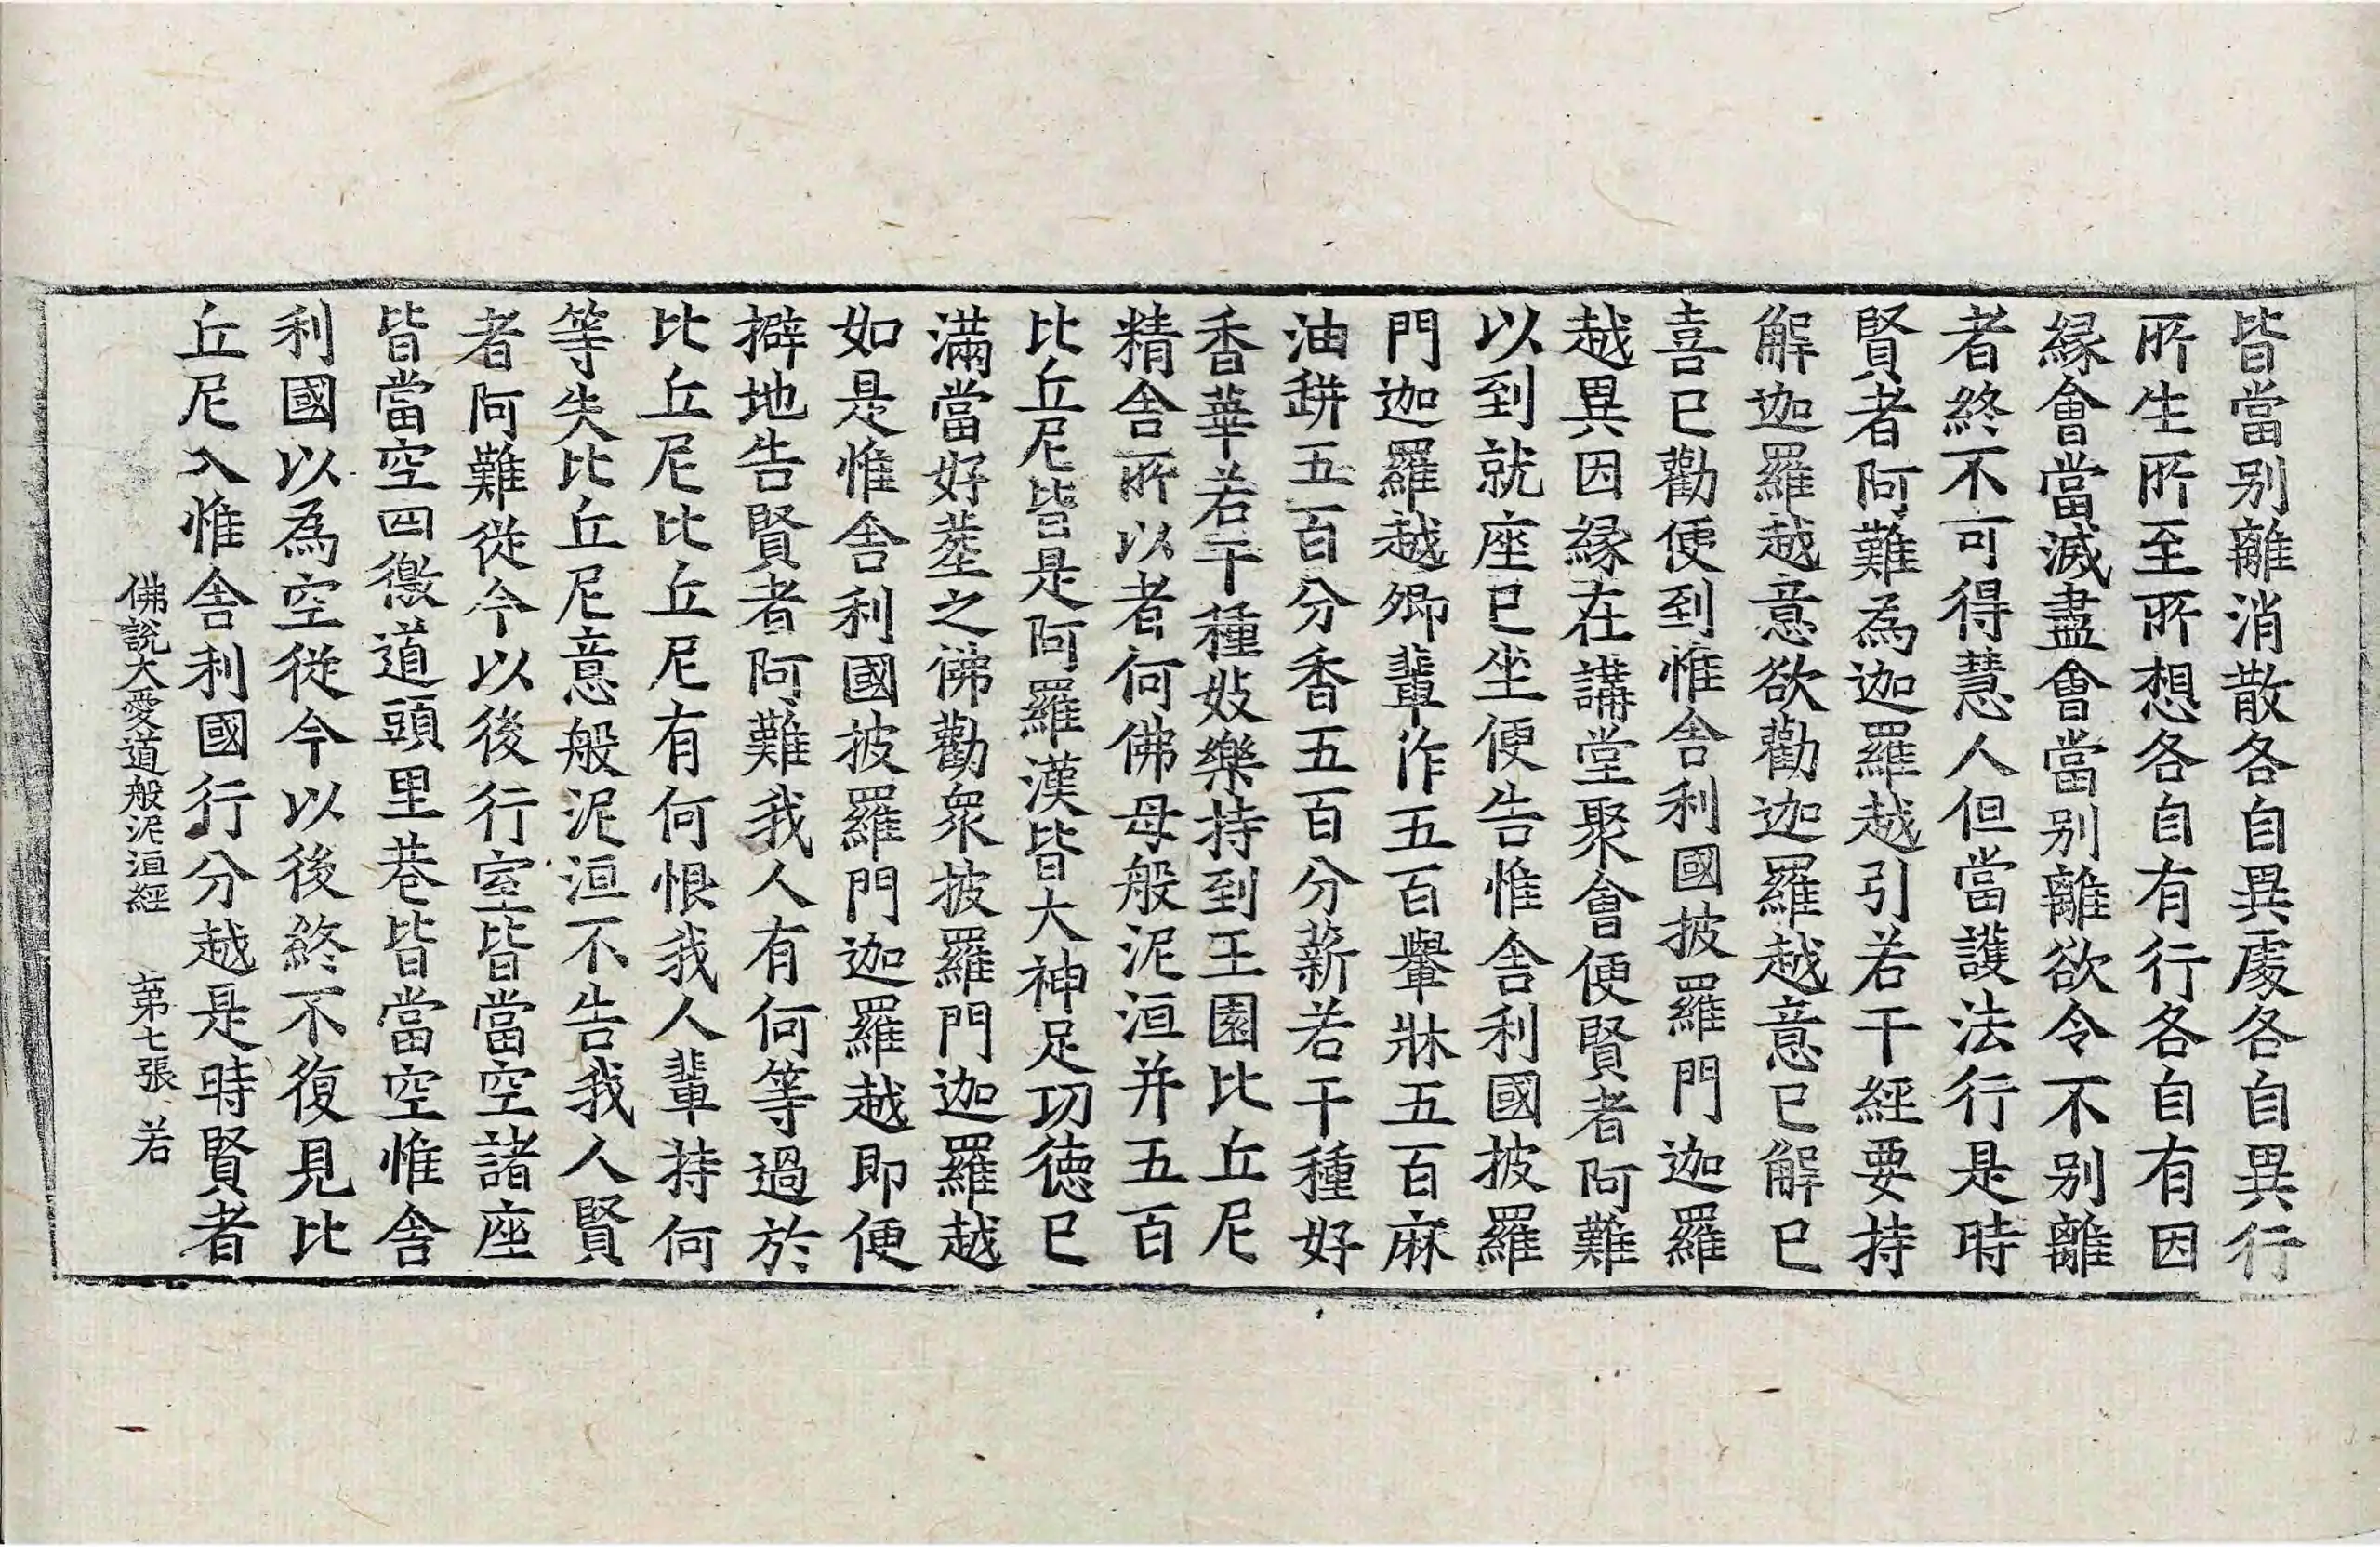 皆當别離消散各自異處各自異行
所生所至所想各自有行各自有因
緣會當滅盡會當别離欲令不别離
者終不可得慧人但當護法行是時
賢者阿難為迦羅越引若干經要持
解迦羅越意欲勸迦羅越意已解已
喜已勸便到惟舍利國披羅門迦羅
越異因緣在講堂聚會便賢者阿難
以到就座已坐便告惟舍利國披羅
門迦羅越卿輩作五百轝牀五百麻
油缾五百分香五百分薪若干種好
香華若干種妓樂持到王園比丘尼
精舍所以者何佛母般泥洹并五百
比丘尼皆是阿羅漢皆大神足功德已
滿當好葬之佛勸衆披羅門迦羅越
如是惟舍利國披羅門迦羅越即便
擗地告賢者阿難我人有何等過於
比丘尼比丘尼有何恨我人輩持何
等失比丘尼意般泥洹不告我人賢
者阿難從今以後行室皆當空諸座
皆當空四徼道頭里巷皆當空惟舍
利國以為空從今以後終不復見比
丘尼入惟舍利國行分越是時賢者
佛說大愛道般泥洹經 第七張 若